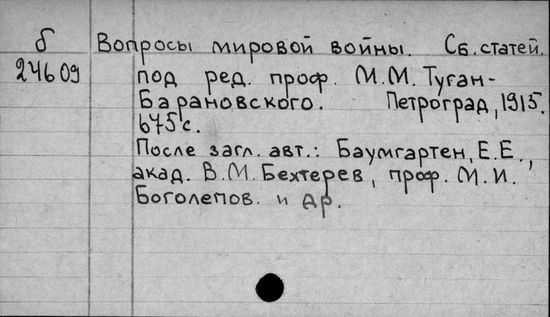 б Вопросы мировой войны. Сб. статей.
24609 под ред. проф. М.М. Туган-
Барановского. Петроград, 1915.
675 с.
После загл. авт.: Баумгартен, Е.Е.,
акад. В.М. Бехтерев, проф. М.И.
Боголепов. и др.